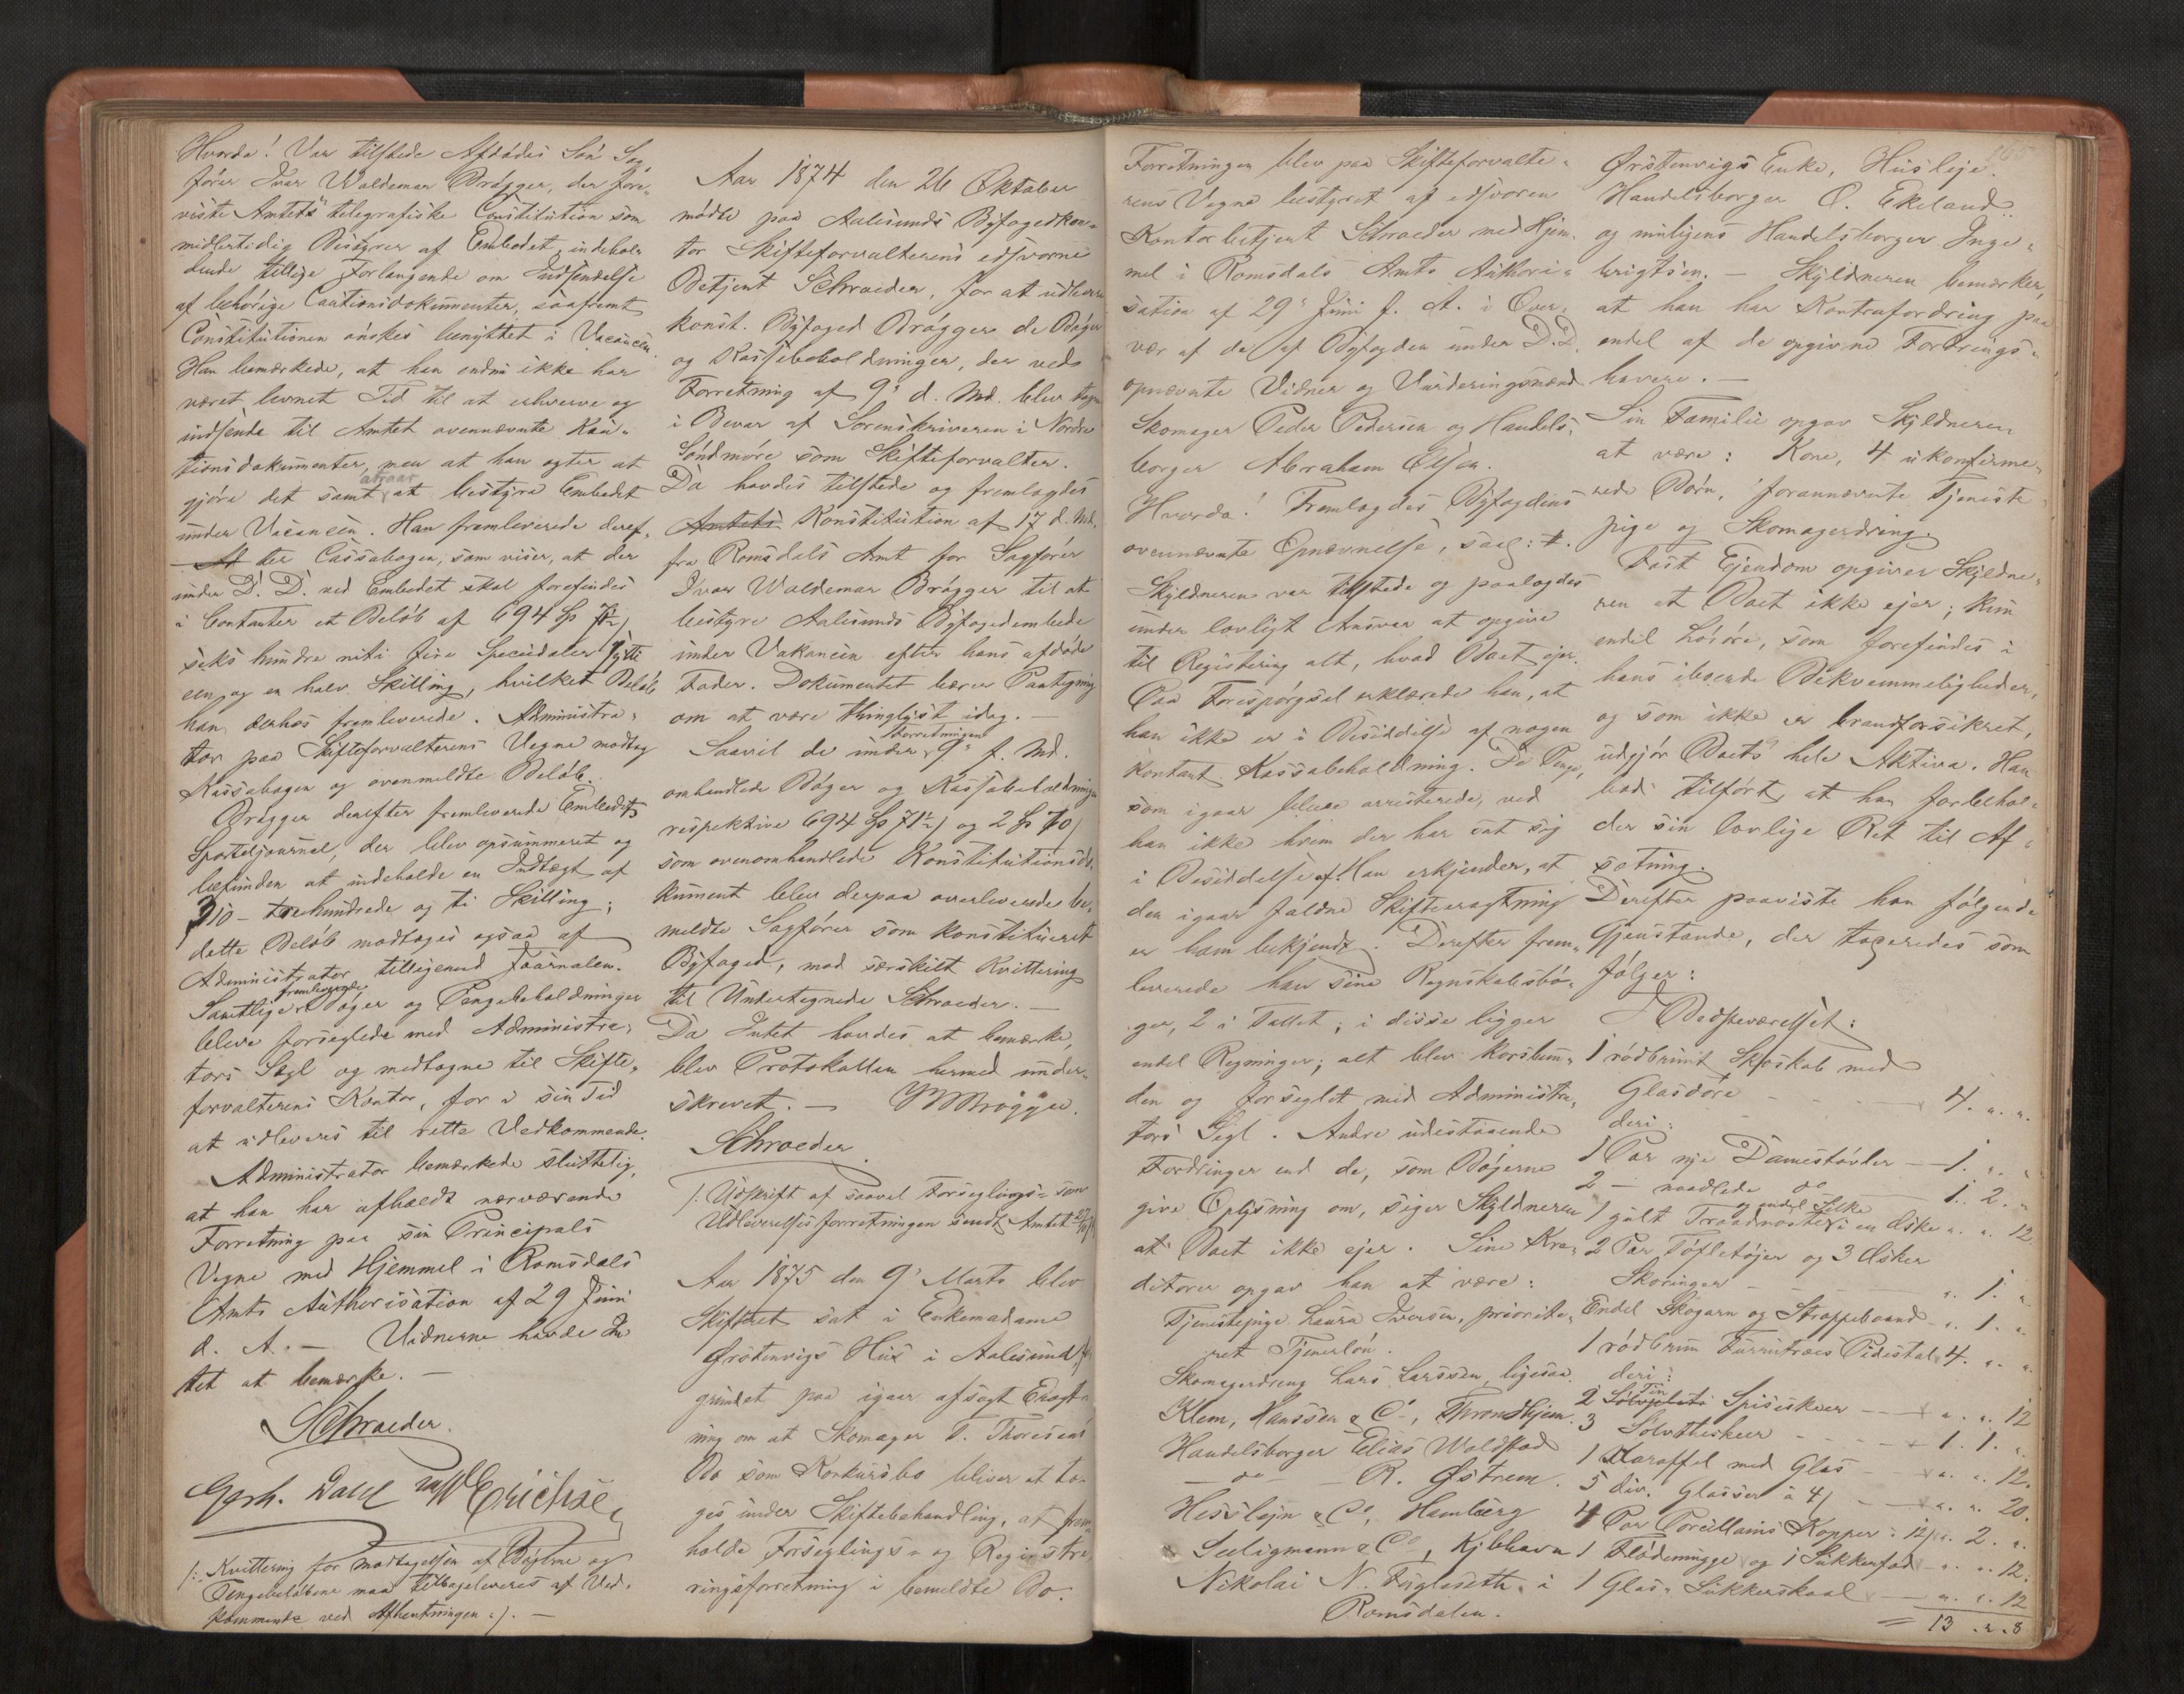 Hvorda! Var tilstede Afdødes Søn Sag-
fører Ivar Waldemar Brøgger, der fore-
viste Amtets telegrafiske Constitution som
midlertidig Bestyrer af Embedet, indehol-
dende tillige Forlangende om Indsendelse
af behørige Cautionsdokumenter, saafremt
Constitutionen ønskes benyttet i Vacancen.
Han bemærkede, at han endnu ikke har
været levnet Tid til at erhverve og
indsende til Amtet ovennævnte Kau-
tionsdokumenter, men at han agter at
gjøre det samt at bestyre Embedet
under Vacancen. Han fremleverede deref-
ter Cassabogen, som viser, at der
under D. D. ved Embedet skal forefindes
i Contanter et Beløb af 694 Sp 71½ /
seks hundre niti fire Speciedaler sytti
een og en halv Skilling, hvilket Beløb
han derhos fremleverede. Administra-
tor paa Skifteforvalterens Vegne modtog
Kassabogen og ovenmeldte Beløb.
Brøgger derefter fremleverede Embedets
Sporteljournal, der blev opsummeret og
befunden at indeholde en Indtægt af
210 - tohundrede og ti Skilling;
dette Beløb modtoges ogsaa af
Administrator tilligemed Journalen.
fremleverede
Samtlige Bøger og Pengebeholdninger
bleve forseglede med Administra-
tors Segl og medtagne til Skifte-
forvalterens Kontor, for i sin Tid
at udleveres til rette Vedkommende.
Administrator bemærkede sluttelig,
at han har afholdt nærværende
Forretning paa sin Principals
Vegne med Hjemmel i Romsdals
Amts Authorisation af 29 Juni
d. A. — Vidnerne havde In-
tet at bemærke. —
Schroeder.
Gerh. Dahl Erichsen
/: Kvittering for Modtagelsen af Bøgerne og
Pengebeløbene maa tilbageleveres af Ved-
kommende ved Afhentningen :/. —
Aar 1874 den 26 Oktober
mødte paa Aalesunds Byfogedkon-
tor Skifteforvalterens edsvorne
Betjent Schroeder, for at udlevere
konst. Byfoged Brøgger de Bøger
og Kassebeholdninger, der ved
Forretning af 9s d. Md. blev tagen
i Bevar af Sorenskriveren i Nordre
Søndmøre som Skifteforvalter.
Da havdes tilstede og fremlagdes
Amtets Konstitution af 17 d. Md.
fra Romsdals Amt for Sagfører
Ivar Waldemar Brøgger til at
bestyre Aalesunds Byfogedembede
under Vakancen efter hans afdøde
Fader. Dokumentet bærer Paategning
om at være thinglyst idag. —
Forretningen
Saavel de under 9s f. Md.
omhandlede Bøger og Kassabeholdninger
respektive 694 Sp 71½ / og 2 Sp 10 /
som ovenomhandlede Konstitutionsdo-
kument blev derpaa overleverede be-
meldte Sagfører som konstitueret
Byfoged, mod særskilt Kvittering
til Undertegnede Schroeder. —
Da Intet havdes at bemærke,
blev Protokollen hermed under-
skrevet. — Brøgger.
Schroeder.
/: Udskrift af saavel Forseglings- som
Udleverelsesforretningen sendt Amtet
Aar 1875 den 9s Marts blev
Skifteret sat i Enkemadame
Ørstenvigs Hus i Aalesund,
grundet paa igaar afsagt Eragt-
ning om at Skomager T. Thoresens
Bo som Konkursbo bliver at ta-
ges under Skiftebehandling, at frem-
holde Forseglings- og Registre-
ringsforretning i bemeldte Bo.
Forretningen blev paa Skifteforvalte-
rens Vegne bestyret af edsvoren
Kontorbetjent Schroeder med Hjem-
mel i Romsdals Amts Authori-
sation af 29s Juni f. A. i Over-
vær af de af Byfogden under D.D.
opnævnte Vidner og Vurderingsmænd
Skomager Peder Pedersen og Handels-
borger Abraham Olsen.
Hvorda! Fremlagdes Byfogdens
ovennævnte Opnævnelse,
Skyldneren var tilstede og paalagdes
under lovligt Ansvar at opgive
til Registering alt, hvad Boet ejer.
Paa Forespørgsel erklærede han, at
han ikke er i Besiddelse af nogen
kontant Kassabeholdning. De Penge,
som igaar bleve arresterede, ved
han ikke hvem der har sat sig
i Besiddelse af. Han erkjender, at
den igaar faldne Skifteeragtning
er ham bekjendt. Derefter frem-
leverede han sine Regnskabsbø-
ger, 2 i Tallet; i disse ligger
endel Regninger; alt blev korsbun-
den og forseglet med Administra-
tors Segl. Andre udestaaende
Fordringer end de, som Bøgerne
give Oplysning om, siger Skyldneren
at Boet ikke ejer. Sine Kre-
ditorer opgav han at være:
Tjenestepige Laura Iversen, priorite-
ret Tjenerløn.
Skomagerdreng Lars Larssen, ligesaa.
Klem, Hanssen & Co, Throndhjem.
Handelsborger Elias Waldstad
— do — R. Østrem.
Hesslejn & Co, Hamburg
Seeligmann & Co, Kjbhavn
Nikolai N. Fuglseth i
Romsdalen.
Ørstenvigs Enke, Husleje.
Handelsborger O. Ekeland
og muligens Handelsborger Inge-
brigtsen. — Skyldneren bemærker,
at han har Kontrafordring paa
endel af de opgivne Fordrings-
havere. —
Sin Familie opgav Skyldneren
at være: Kone, 4 ukonfirme-
rede Børn, forannævnte Tjeneste-
pige og Skomagerdreng.
Fast Ejendom opgiver Skyldne-
ren at Boet ikke ejer; kun
endel Løsøre, som forefindes i
hans iboende Bekvemmeligheder,
og som ikke er brandforsikret,
udgjør Boets hele Aktiva. Han
bad tilført, at han forbehol-
der sin lovlige Ret til Af-
sætning.
Derefter paaviste han følgende
Gjenstande, der taxeredes som
følger:
I Bedsteværelset:
1 rødbrunt Skoskab med
Glasdøre — 4. „. „.
deri:
1 Par nye Damestøvler — 1. „. „
2 — naadlede do 1. 2. „
og endel Silke
1 gult Traadnøste i en Æske „. „. 12
2 Par Tøfletøjer og 3 Æsker
Skoringer — „. 1. „
Endel Skogarn og Stroppebaand „. 1. „
1 rødbrun Furrutræes Pidestal 4. „. „
deri:
2 Tin Spiseskeer — „. „. 12
3 Sølvtheskeer — 1. 1. „
1 Karaffel med Glas — „. „. 12.
5 div. Glasser à 4/ — „. „. 20.
4 Par Porcellains Kopper à 12/ „. 2. „
1 Flødemugge og 1 Sukkerfad „. „. 12.
1 Glas-Sukkerskaal — „. „. 12
= 13 . 2 . 8